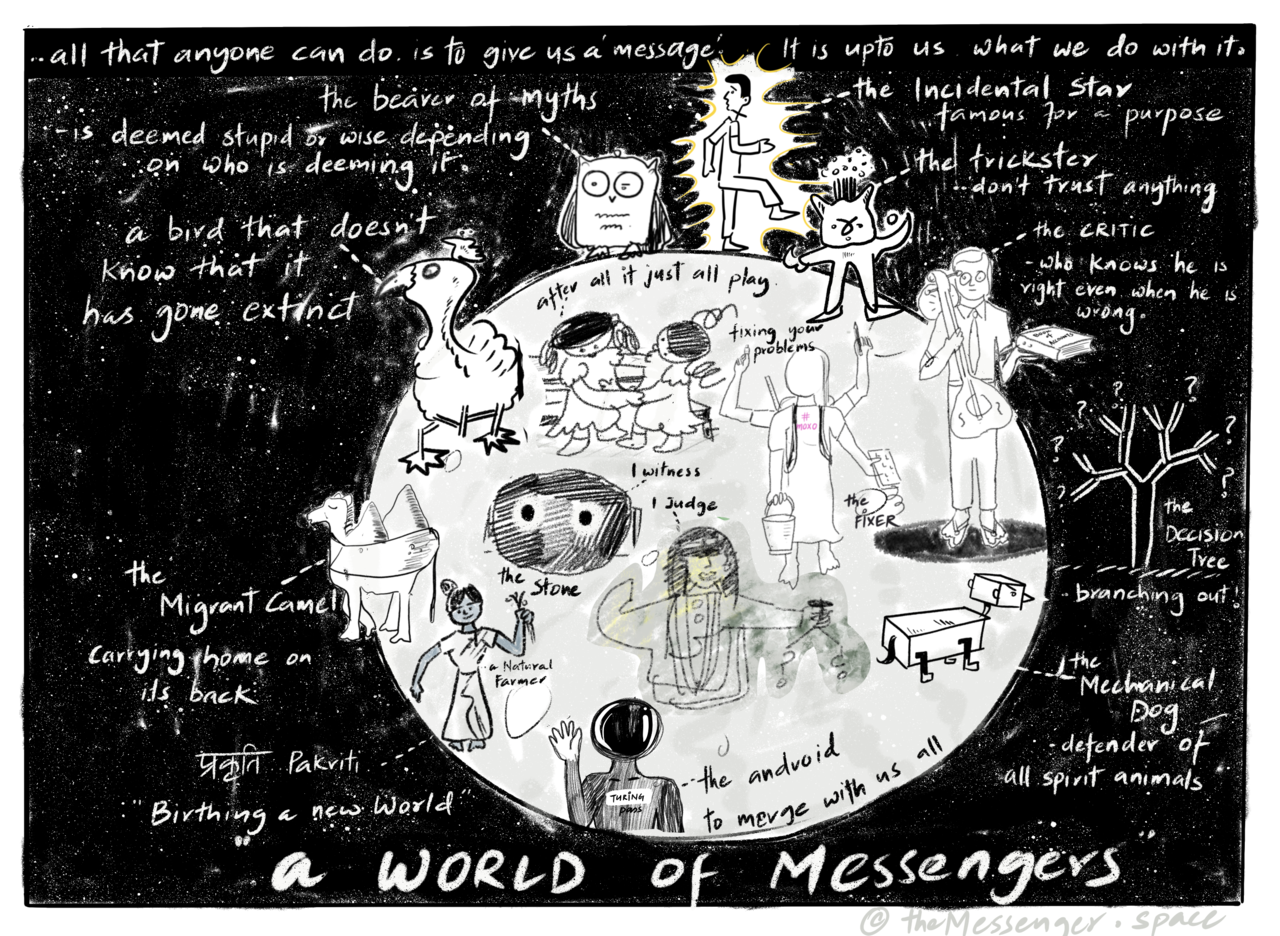 ..all that anyone can do. is to give us a 'message'.. It is upto us what we do with it.
the bearer of myths
- is deemed stupid or wise depending
on who is deeming it.
the Incidental Star
famous for a purpose
the trickster
..don't trust anything
a bird that doesn't
know that it
has gone extinct
the CRITIC
- who knows he is
right even when he is
wrong.
after all it just all play.
fixing your
problems
#
moxo
I witness
I Judge
the
FIXER
the Stone
the
Decision
Tree
? ? ? ? ? ? ?
- branching out!
the
Migrant Camel
carrying home on
its back
a Natural
Farmer
the
Mechanical
Dog
- defender of
all spirit animals
प्रकृति Pakriti
"Birthing a new World"
TURING
pass
the android
to merge with us all
"a WORLD of Messengers"
@theMessenger.space